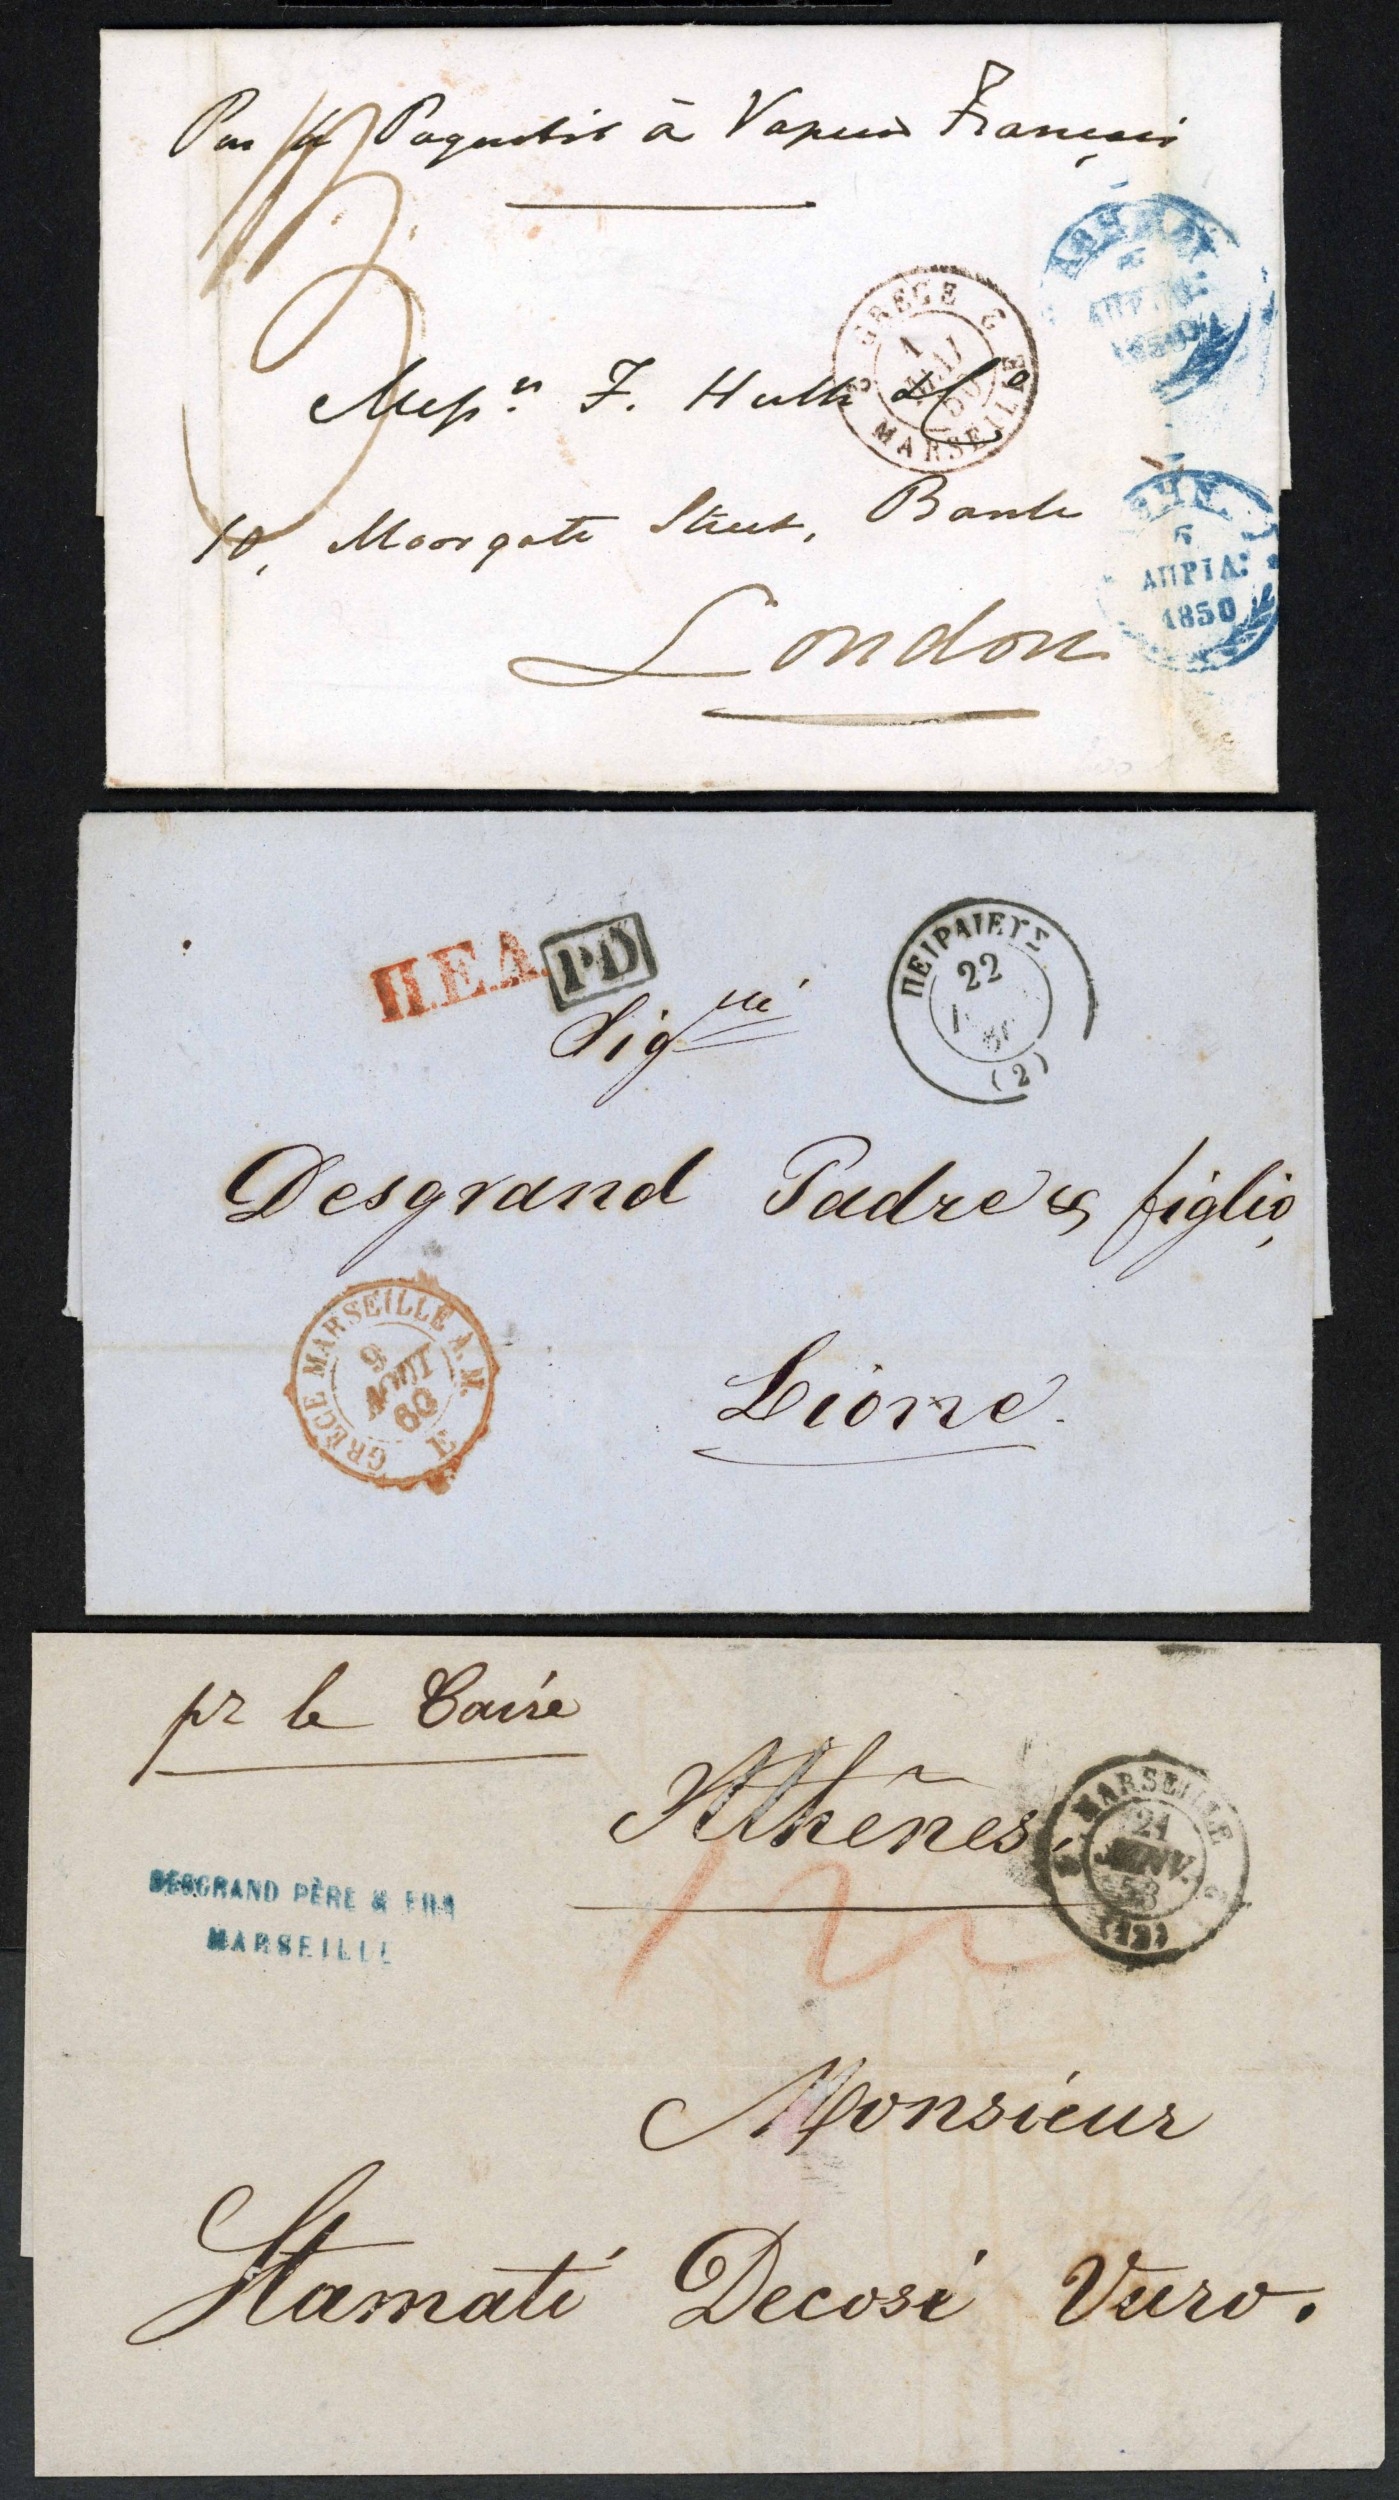 Par le Paquebot à Vapeur Français
GRECE
1
MAI
50
MARSEILLE
Mess.rs F. Huth & Co
10, Moorgate Street, Bank
London
ΑΠΡΙΛ:
1850
Π.Ε.Δ.
PD
ΠΕΙΡΑΙΕΥΣ
22
(2)
Sig.ri
Desgrand Padre & figlio,
Lione.
GRÈCE MARSEILLE A. M.
9
AOUT
60
E
pr le Caire
Athênes.
MARSEILLE
21
JANV.
58
DESGRAND PÈRE & FILS
MARSEILLE
Monsieur
Stamati Decosi Vuro.